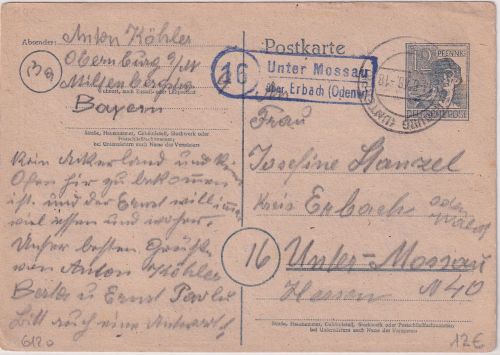 Absender: Anton Köhler
Obernburg a/M
Miltenbergstr
Bayern
13a
Straße, Hausnummer, Gebäudeteil, Stockwerk oder Postschließfachnummer;
bei Untermietern auch Name des Vermieters
Kein Ackerland und kein
Ofen hir zu bekommen
ist. und der Ernst will immer
viel essen und
Unsher besten Grüße
von Anton Köhler
Berta u Ernst
Bitt auch eine Antwort
6120
Postkarte
12 PFENNIG
DEUTSCHE POST
16
Unter Mossau
über Erbach (Odenw)
An
Frau
Josefine Stanzel
Kreis Erbach Odenwald
16 Unter-Mossau
Hessen N 40
Straße, Hausnummer, Gebäudeteil, Stockwerk oder Postschließfachnummer;
bei Untermietern auch Name des Vermieters
12€